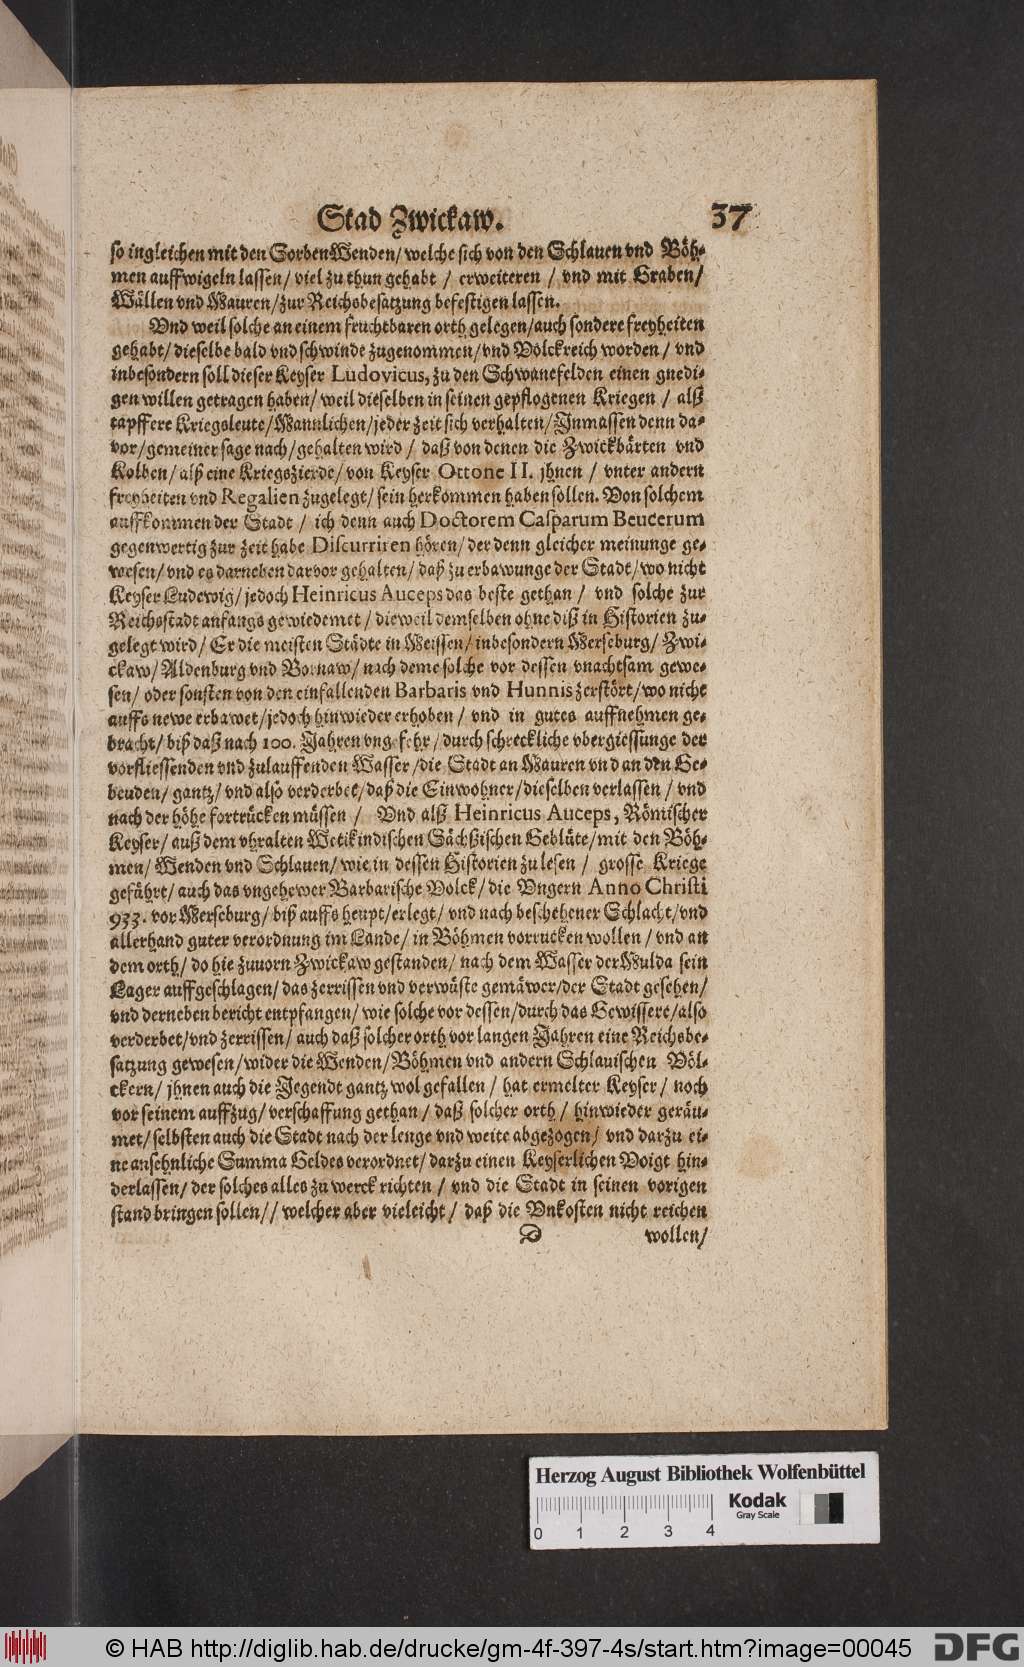 Stad Zwickaw. 37
so ingleichen mit den SorbenWenden/ welche sich von den Schlauen vnd Böh-
men auffwigeln lassen/ viel zu thun gehabt / erweiteren / vnd mit Graben/
Wällen vnd Mauren/ zur Reichsbesatzung befestigen lassen.
Vnd weil solche an einem fruchtbaren orth gelegen/ auch sondere freyheiten
gehabt/ dieselbe bald vnd schwinde zugenommen/ vnd Volckreich worden / vnd
inbesondern soll dieser Keyser Ludovicus, zu den Schwanefelden einen gnedi-
gen willen getragen haben/ weil dieselben in seinen gepflogenen Kriegen / alß
tapffere Kriegsleute/ Mannlichen/ jeder zeit sich verhalten/ Inmassen denn da-
vor/ gemeiner sage nach/ gehalten wird / daß von denen die Zwickbärten vnd
Kolben/ alß eine Kriegszierde/ von Keyser Ottone II. jhnen / vnter andern
freyheiten vnd Regalien zugelegt/ sein herkommen haben sollen. Von solchem
auffkommen der Stadt / ich denn auch Doctorem Casparum Beucerum
gegenwertig zur zeit habe Discurriren hören/ der denn gleicher meinunge ge-
wesen/ vnd es darneben darvor gehalten/ daß zu erbawunge der Stadt/ wo nicht
Keyser Ludewig/ jedoch Heinricus Auceps das beste gethan / vnd solche zur
Reichsstadt anfangs gewiedemet / dieweil demselben ohne diß in Historien zu-
gelegt wird/ Er die meisten Städte in Meissen/ inbesondern Merseburg/ Zwi-
ckaw/ Aldenburg vnd Bornaw/ nach deme solche vor dessen vnachtsam gewe-
sen/ oder sonsten von den einfallenden Barbaris vnd Hunnis zerstört/ wo nicht
auffs newe erbawet/ jedoch hinwieder erhoben / vnd in gutes auffnehmen ge-
bracht/ biß daß nach 100. Jahren vngefehr/ durch schreckliche vbergiessunge der
vorfliessenden vnd zulauffenden Wasser/ die Stadt an Mauren vnd an den Ge-
beuden/ gantz/ vnd also verderbet/ daß die Einwohner/ dieselben verlassen / vnd
nach der höhe fortrücken müssen / Vnd alß Heinricus Auceps, Römischer
Keyser/ auß dem vhralten Wetikindischen Sächßischen Geblüte/ mit den Böh-
men/ Wenden vnd Schlauen/ wie in dessen Historien zu lesen / grosse Kriege
geführt/ auch das vngehewer Barbarische Volck/ die Vngern Anno Christi
933. vor Merseburg/ biß auffs heupt/ erlegt/ vnd nach beschehener Schlacht/ vnd
allerhand guter verordnung im Lande/ in Böhmen vorrucken wollen / vnd an
dem orth/ do hie zuvorn Zwickaw gestanden/ nach dem Wasser der Mulda sein
Lager auffgeschlagen/ das zerrissen vnd verwüste gemäwer/ der Stadt gesehen/
vnd derneben bericht entpfangen/ wie solche vor dessen/ durch das Gewissere/ also
verderbet/ vnd zerrissen/ auch daß solcher orth vor langen Jahren eine Reichsbe-
satzung gewesen/ wider die Wenden/ Böhmen vnd andern Schlauischen Völ-
ckern/ jhnen auch die Jegendt gantz wol gefallen / hat ermelter Keyser / noch
vor seinem auffzug/ verschaffung gethan / daß solcher orth / hinwieder geräu-
met/ selbsten auch die Stadt nach der lenge vnd weite abgezogen/ vnd darzu ei-
ne ansehnliche Summa Geldes verordnet/ darzu einen Keyserlichen Voigt hin-
derlassen/ der solches alles zu werck richten / vnd die Stadt in seinen vorigen
stand bringen sollen// welcher aber vieleicht / daß die Vnkosten nicht reichen
D wollen/
Herzog August Bibliothek Wolfenbüttel
Kodak
Gray Scale
0 1 2 3 4
© HAB http://diglib.hab.de/drucke/gm-4f-397-4s/start.htm?image=00045
DFG